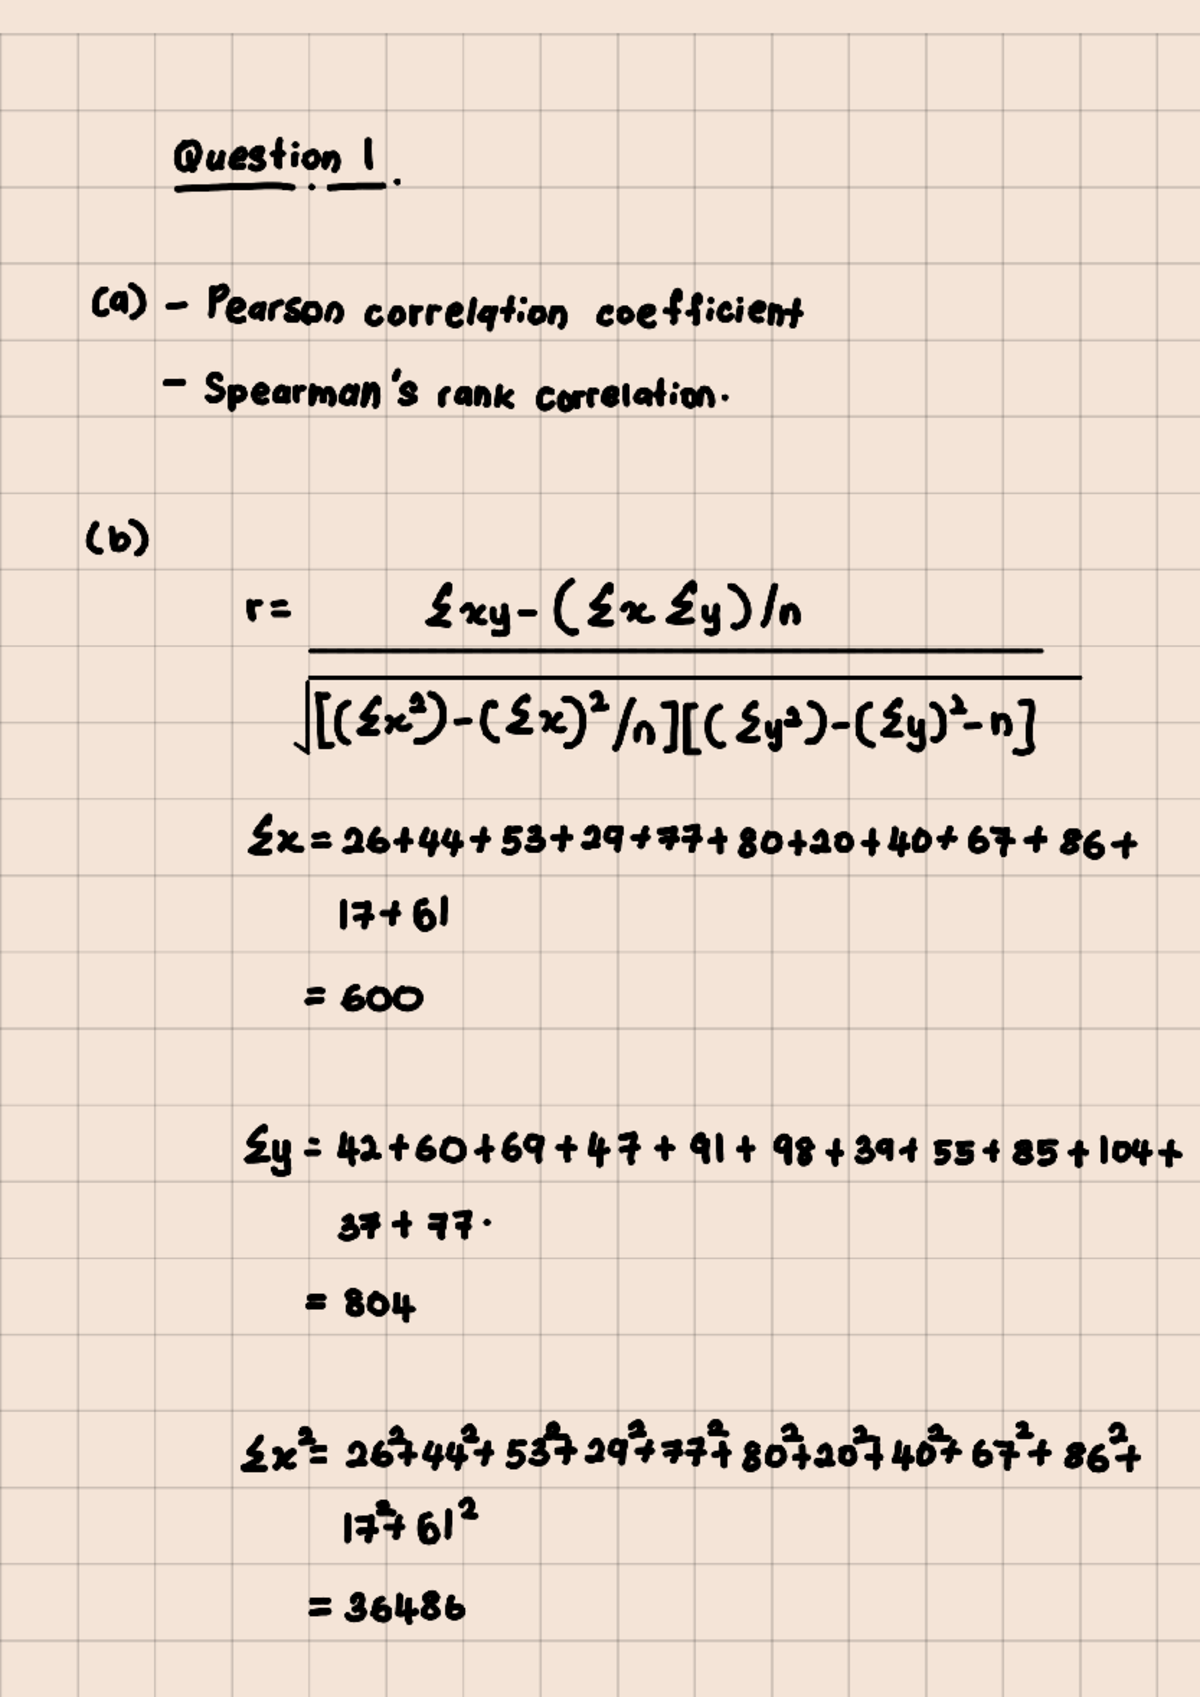 Question 1.
(a) - Pearson correlation coefficient
- Spearman's rank correlation.
(b)
r = Σxy - (Σx Σy)/n
√[(Σx²) - (Σx)²/n][(Σy²) - (Σy)² - n]
Σx = 26+44+53+29+77+80+20+40+67+86+
17+61
= 600
Σy = 42+60+69+47+91+98+39+55+85+104+
37+77.
= 804
Σx² = 26²+44²+53²+29²+77²+80²+20²+40²+67²+86²+
17²+61²
= 36486